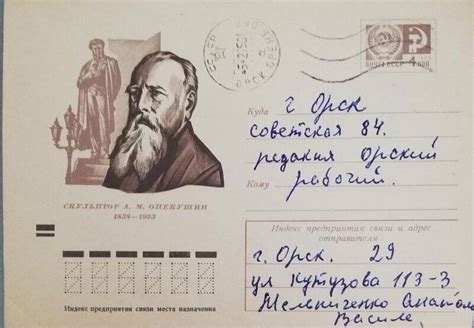 ПОЧТА СССР
СКУЛЬПТОР А. М. ОПЕКУШИН
1838—1923
Куда г Орск
советская 84.
редакия Орский
Кому рабочий.
Индекс предприятия связи и адрес
отправителя
г. Орск. 29
ул Кутузова 113-3
Мельниченко Анатол
Василе
Индекс предприятия связи места назначения